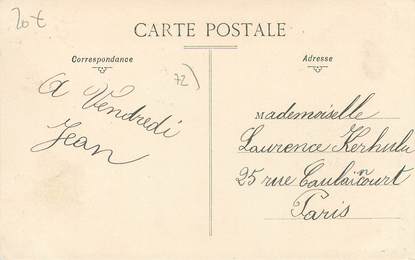 20€
CARTE POSTALE
Correspondance
Adresse
72)
A Vendredi
Jean
Mademoiselle
Laurence Kerhulu
25 rue Caulaincourt
Paris